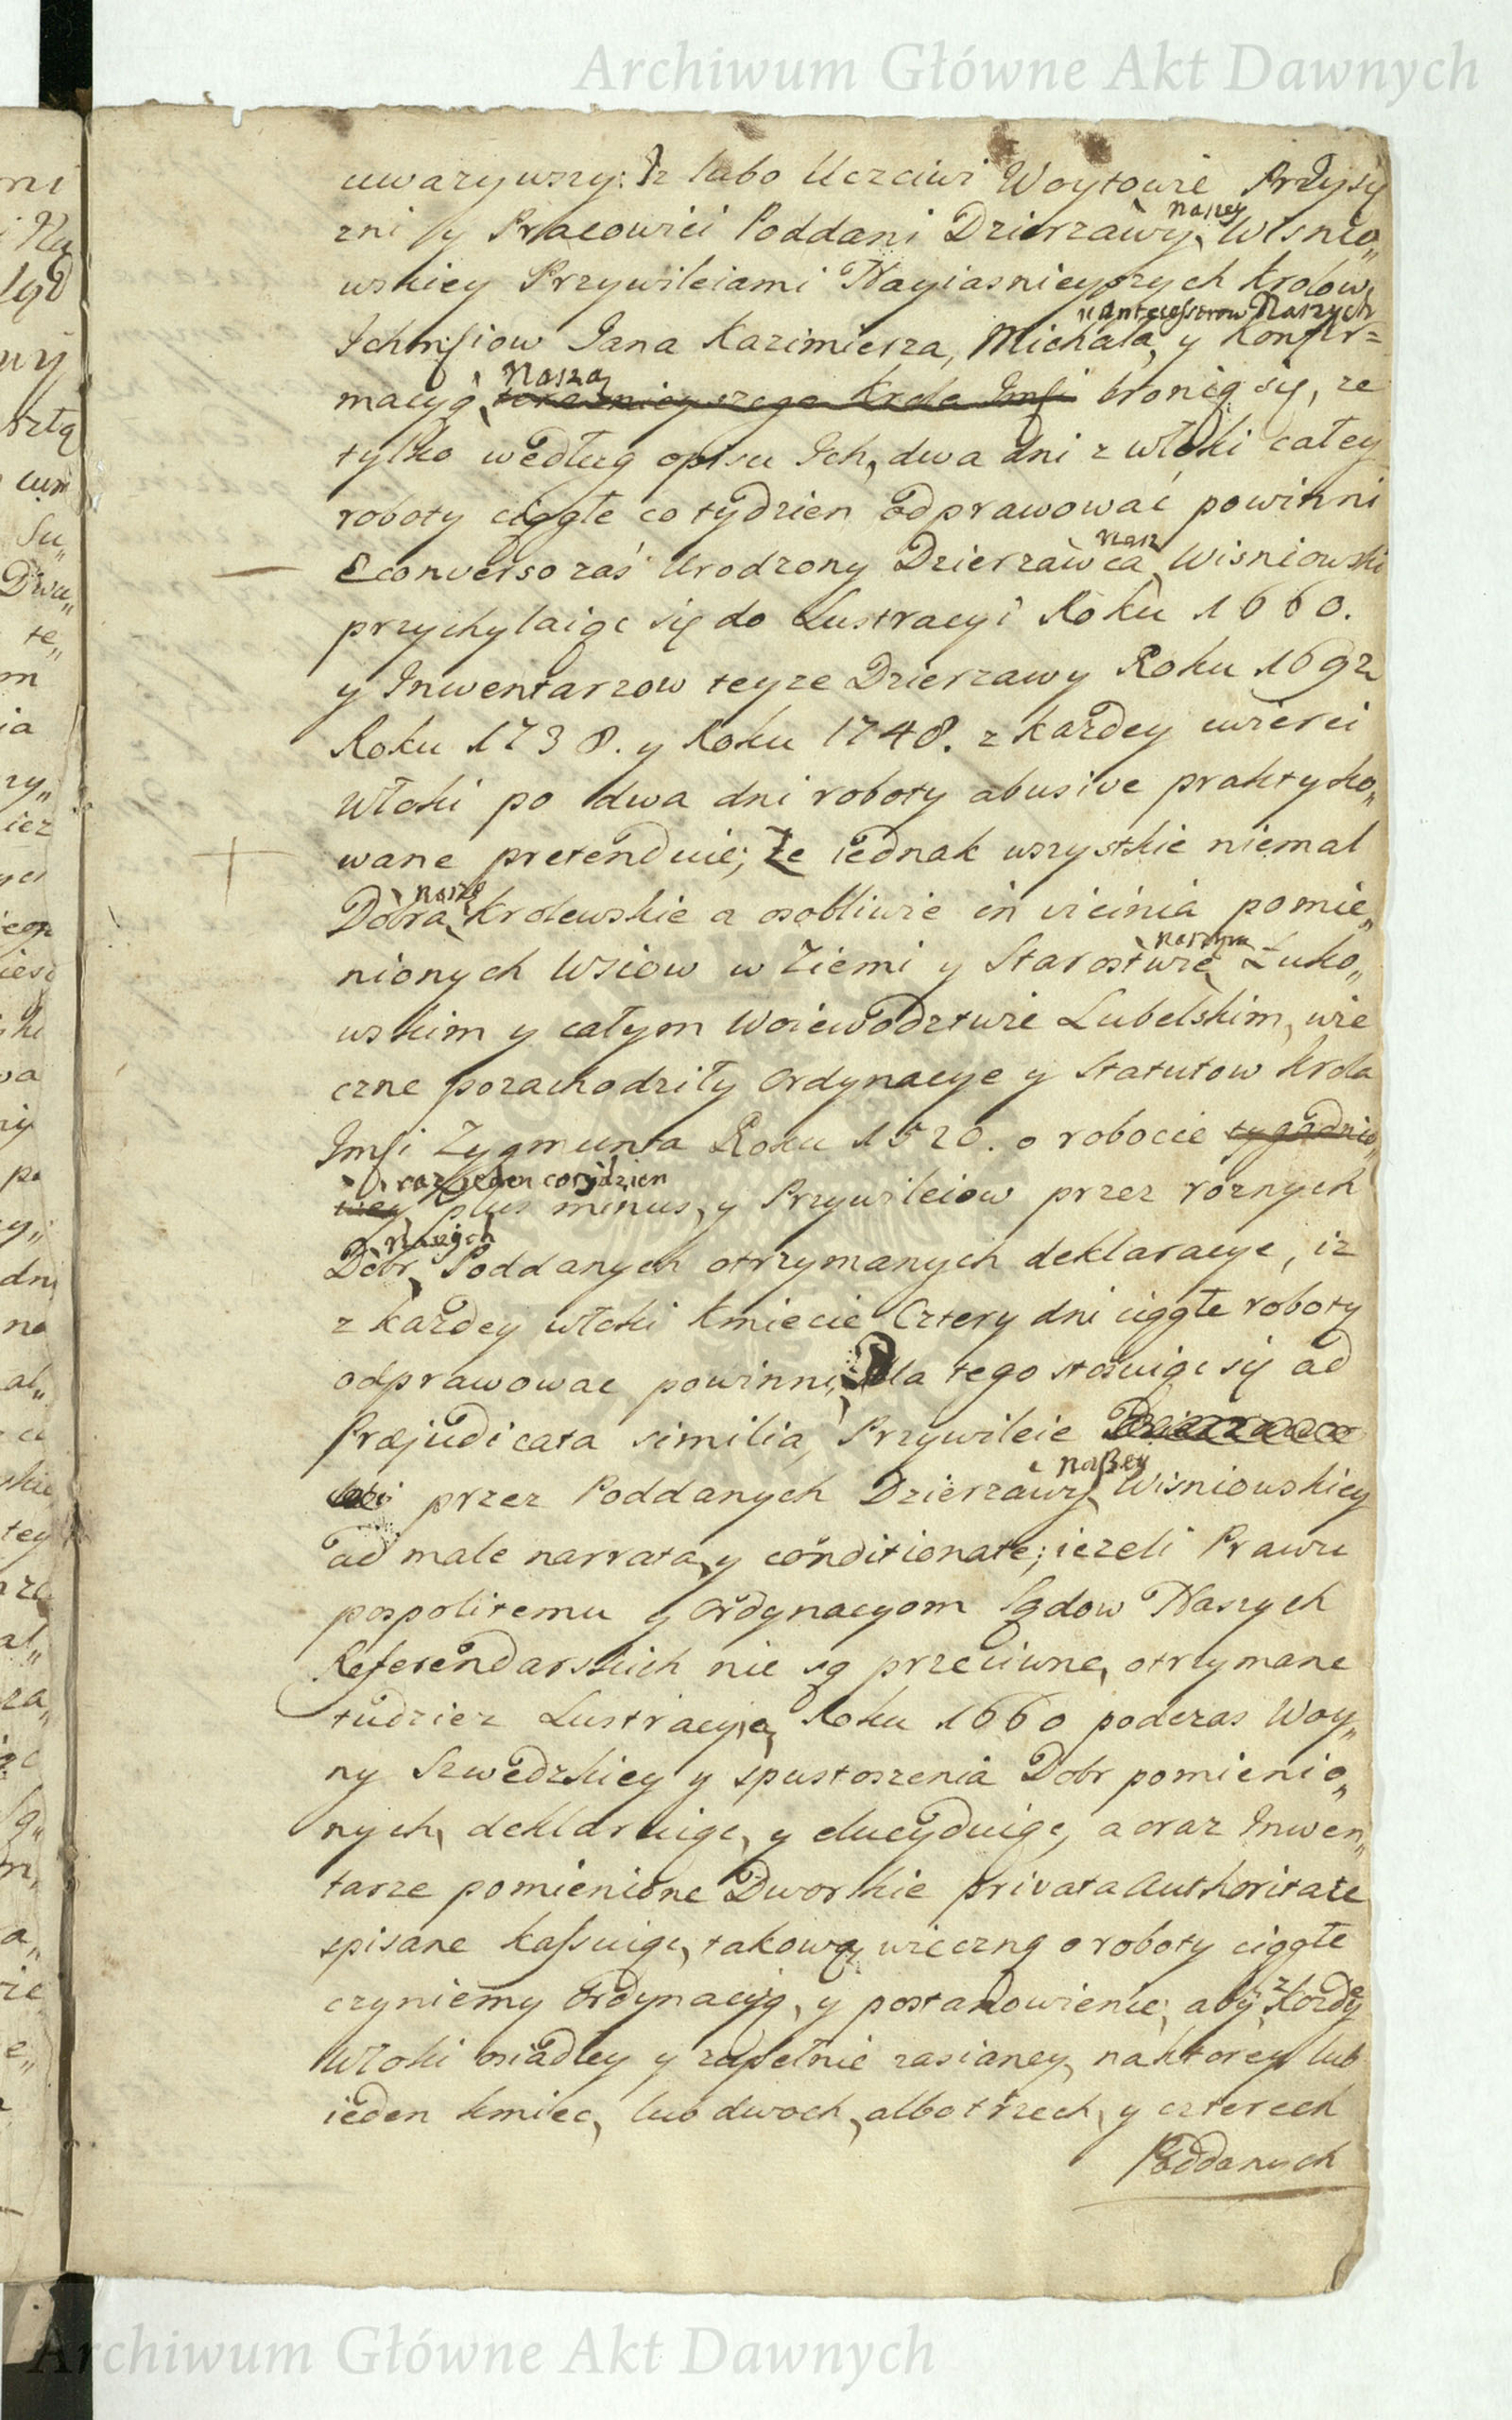 Archiwum Główne Akt Dawnych
uwazywszy: Iz lubo Uczciwi Woytowie Przysię
zni y Pracowici Poddani Dzierzawy naszey Wisnio„
wskiey Przywileiami Nayiasnieyszych Krolow
Ichmsciow Jana Kazimierza, Michała, Antecessorow Naszych y Konfir=
macyą Naszą teraznieyszego Krola Jmsci bronią się, ze
tylko według opisu Ich, dwa dni z włoki całey
roboty ciągłe co tydzien odprawować powinni
Econverso zaś Urodzony Dzierzawca nasz Wisniowski
przychylaiąc się do Lustracyi Roku 1660.
y Inwentarzow teyze Dzierzawy Roku 1692
Roku 1738. y Roku 1748. z kazdey cwierci
Włoki po dwa dni roboty abusive praktyko„
wane pretenduie; Ze iednak wszystkie niemal
Dobra nasze Krolewskie a osobliwie in vicinia pomie„
nionych Wsiow w Ziemi y Starostwie naszym Łuko„
wskim y całym Woiewodztwie Lubelskim, wie
czne pozachodziły Ordynacye y Statutow Krola
Jmsci Zygmunta Roku 1520. o robocie tygodnio„
wey raz ieden co tydzien plus minus, y Przywileiow przez roznych
Dobr Naszych Poddanych otrzymanych deklaracye, iz
z kazdey włoki Kmiecie Cztery dni ciągłe roboty
odprawowac powinni, Dla tego stosuiąc się ad
Præjudicata similia, Przywileie
przez Poddanych Dzierzawy naszey Wisniowskiey
ad male narrata, y conditionate; iezeli Prawu
pospolitemu y Ordynacyom Sądow Naszych
Referendarskich nie są przeciwne, otrzymane
tudziez Lustracyią Roku 1660 podczas Woy„
ny Szwedzkiey y spustoszenia Dobr pomienio„
nych, deklaruiąc, y elucyduiąc, a oraz Inwen„
tarze pomienione Dworskie privata Authoritate
spisane kassuiąc, takową wieczną o roboty ciągłe
czyniemy Ordynacyią, y postanowienie, aby z kozdey
Włoki osiadley y zupełnie zasianey, na ktorey lub
ieden kmiec, lub dwoch, albo trzech, y czterech
Poddanych
Archiwum Główne Akt Dawnych